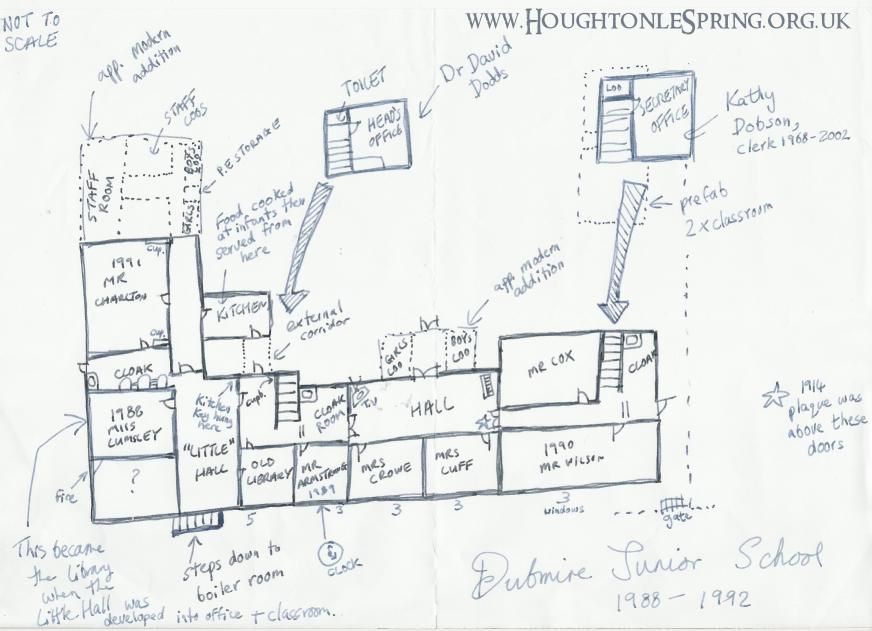 NOT TO
SCALE
www.HoughtonleSpring.org.uk
app. modern
addition
STAFF
LOOS
P.E. STORAGE
TOILET
HEAD'S
OFFICE
Dr David
Dodds
LOO
SECRETARY
OFFICE
Kathy
Dobson,
clerk 1968-2002
prefab
2 x classroom
STAFF
ROOM
BOYS
LOO
GIRLS
Food cooked
at infants then
served from
here
CUP.
1991
MR
CHARLTON
CUP.
KITCHEN
external
corridor
app. modern
addition
GIRLS
LOO
BOYS
LOO
CLOAK
1988
MISS
LUMSLEY
Kitchen
key hung
here
"LITTLE"
HALL
Cupb.
CLOAK
ROOM
TV
HALL
MR COX
CLOAK
1914
plaque was
above these
doors
?
OLD
LIBRARY
MR
ARMSTRONG
1989
MRS
CROWE
MRS
CUFF
1990
MR WILSON
fire
5
3
3
3
3
windows
gate
CLOCK
steps down to
boiler room
This became
the library
when the
Little Hall was
developed into office + classroom.
Dubmire Junior School
1988 - 1992